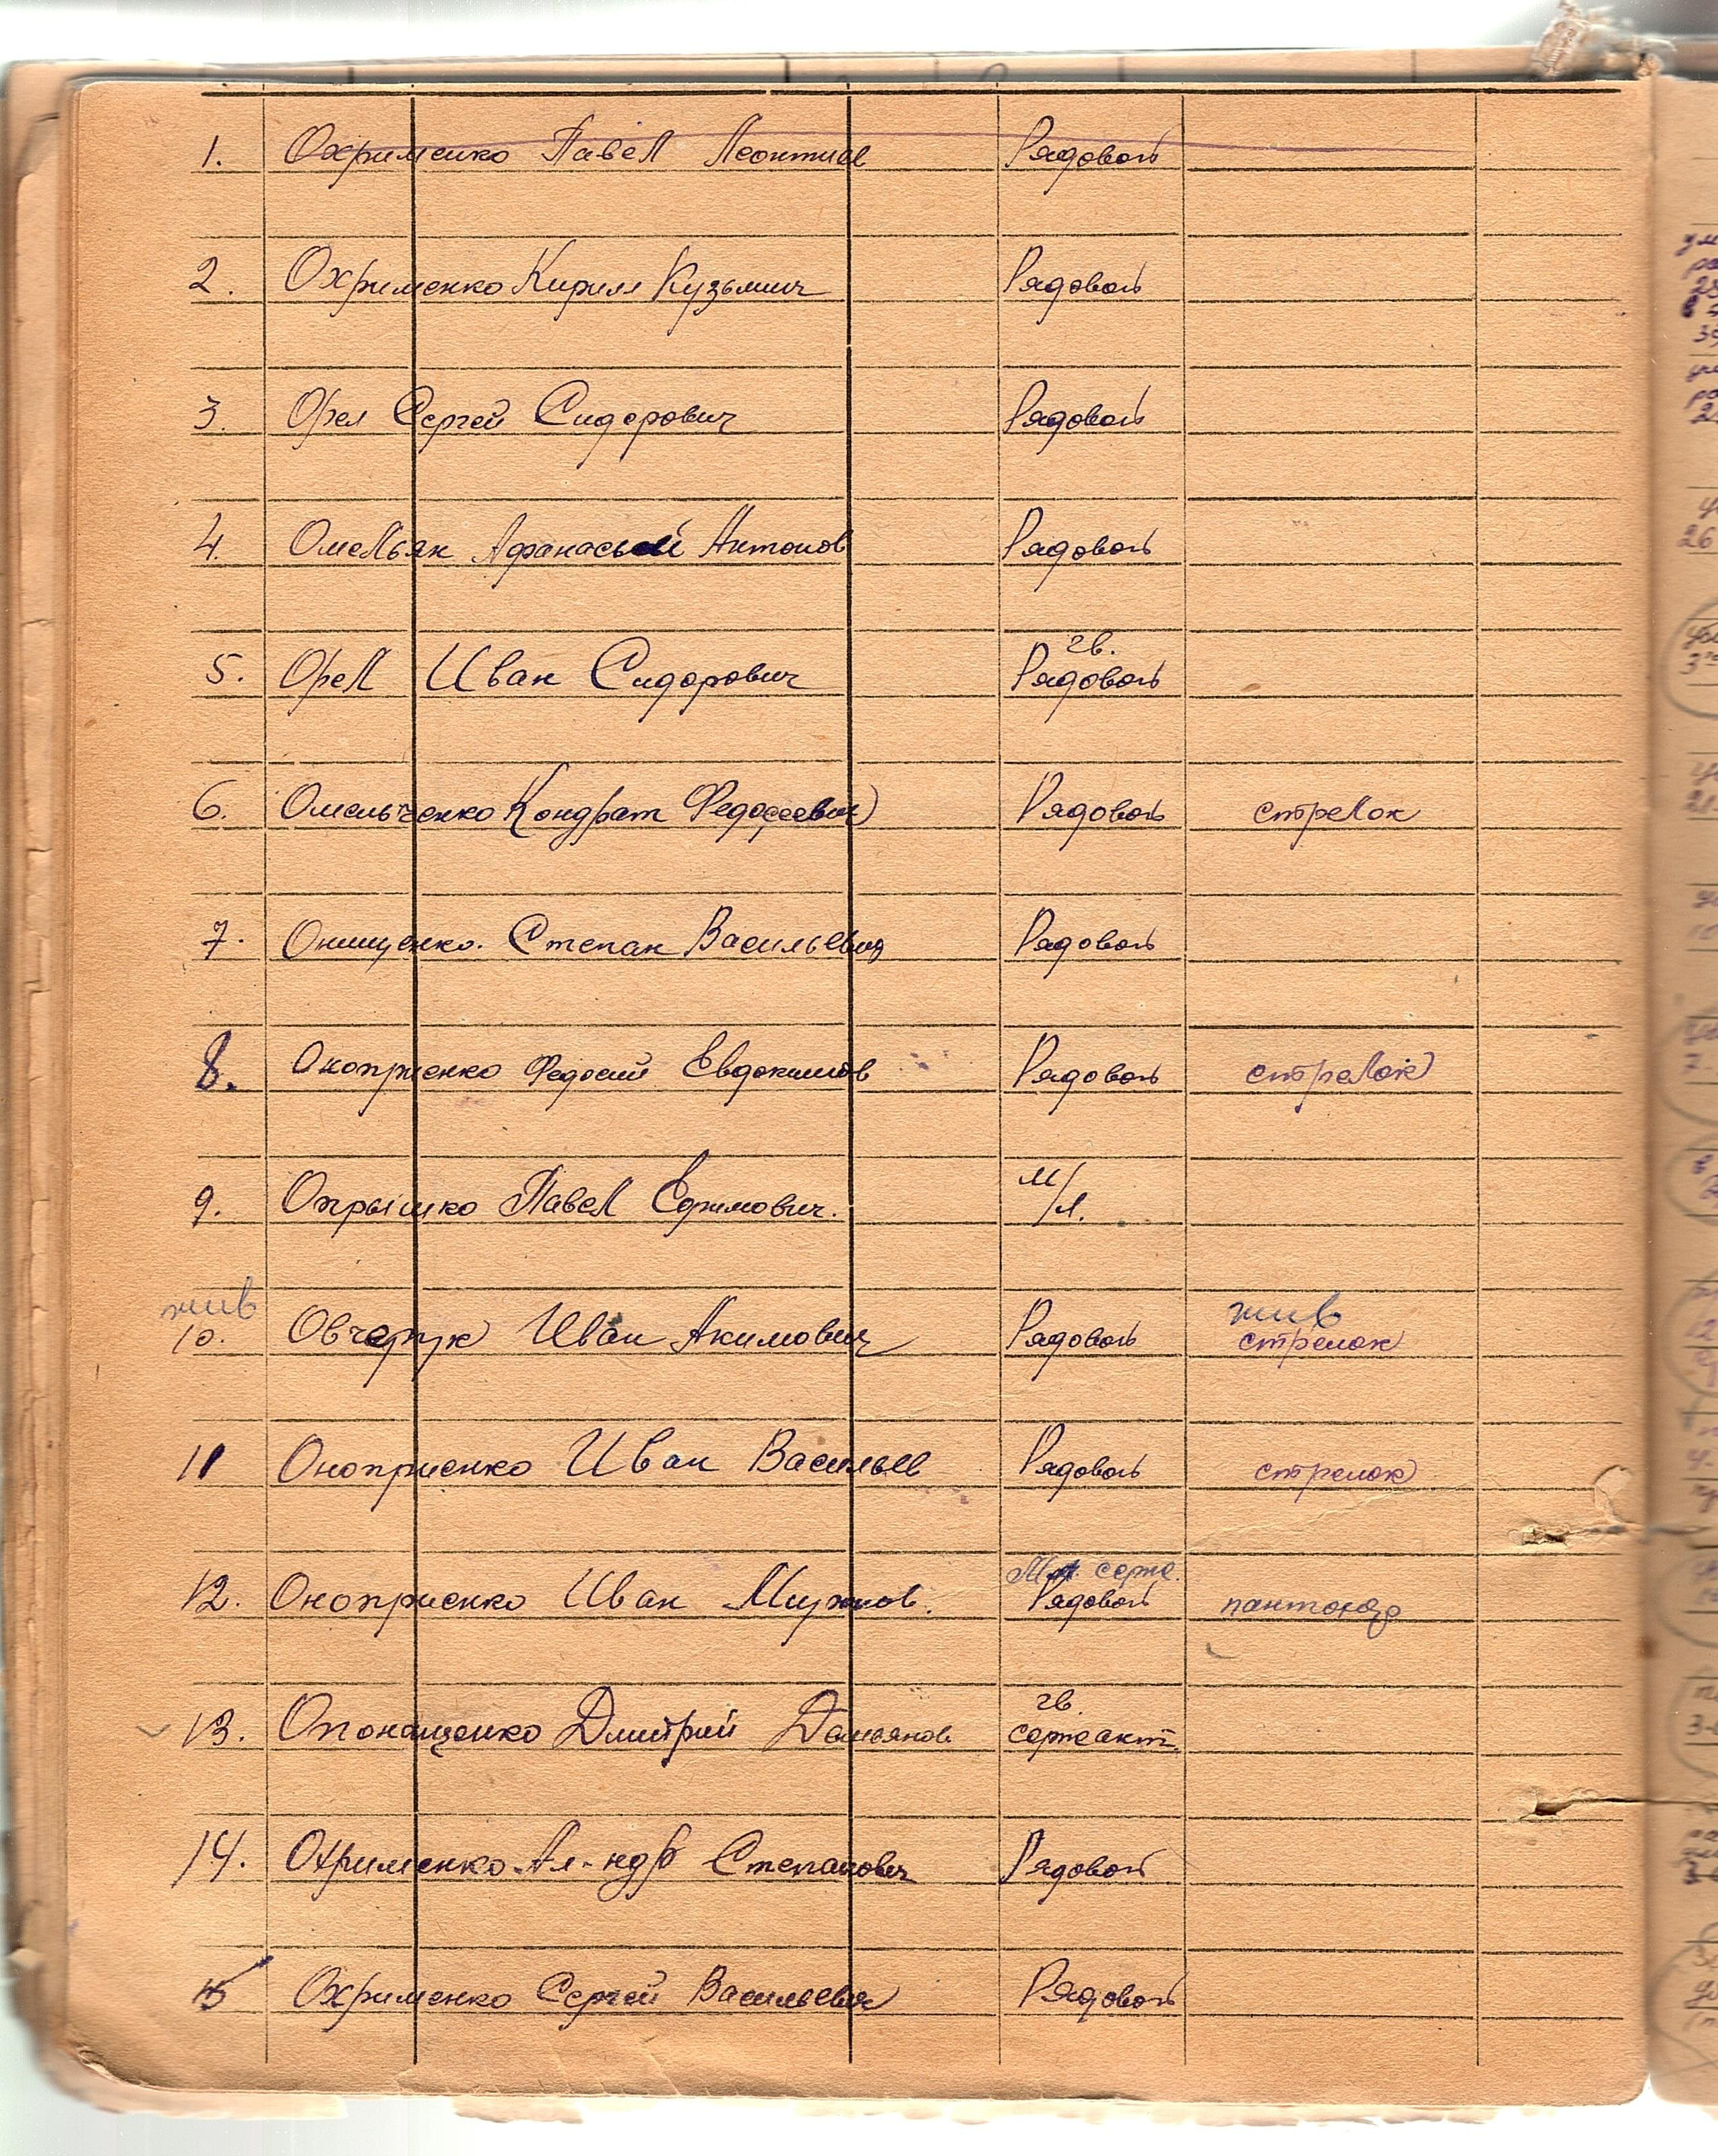 1. Охрименко Павел Леонтиев Рядовой
2. Охрименко Кирилл Кузьмич Рядовой
3. Орел Сергей Сидорович Рядовой
4. Омельяк Афанасий Антонов Рядовой
гв.
5. Орел Иван Сидорович Рядовой
6. Омельченко Кондрат Федосеевич Рядовой стрелок
7. Онищенко. Степан Васильевич Рядовой
8. Оноприенко Федосий Евдокимов Рядовой стрелок
9. Опрышко Павел Ефимович. м/л.
жив жив
10. Иван Акимович Рядовой стрелок
11 Оноприенко Иван Васильев Рядовой стрелок
Мл. серж.
12. Оноприенко Иван Рядовой
гв.
13. Опонащенко Дмитрий Демьянов сержант.
14. Охрименко Ал-ндр Степанович Рядовой
15 Охрименко Сергей Васильевич Рядовой